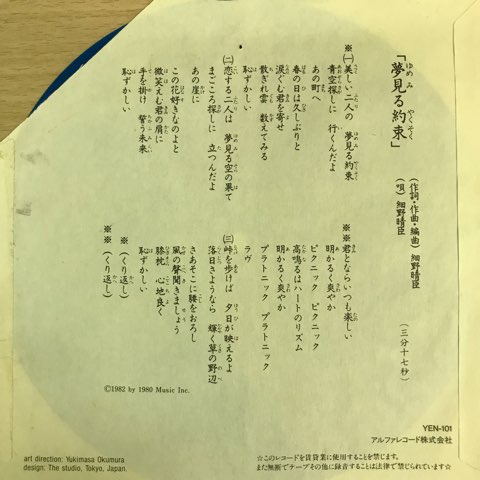 「夢見る約束」
（作詞・作曲・編曲）細野晴臣
（唄）細野晴臣
（三分十七秒）
※㈠美しい二人の　夢見る約束
青空探しに　行くんだよ
あの町へ
春の日は久しぶりと
涙ぐむ君を寄せ
散ぎれ雲　数えてみる
恥ずかしい
㈡恋する二人は　夢見る空の果て
まごころ探しに　立つんだよ
あの崖に
この花好きなのよと
微笑えむ君の肩に
手を掛け　誓う未来
恥ずかしい
※※君とならいつも楽しい
明かるく爽やか
ピクニック　ピクニック
高鳴るはハートのリズム
明かるく爽やか
プラトニック　プラトニック
ラヴ
㈢峠を歩けば　夕日が映えるよ
落日さようなら　輝く草の野辺
さあそこに腰をおろし
風の聲聞きましょう
膝枕　心地良く
恥ずかしい
※（くり返し）
※※（くり返し）
©1982 by 1980 Music Inc.
YEN-101
アルファレコード株式会社
art direction: Yukimasa Okumura
design: The studio, Tokyo, Japan.
☆このレコードを賃貸業に使用することを禁じます。
また無断でテープその他に録音することは法律で禁じられています☆